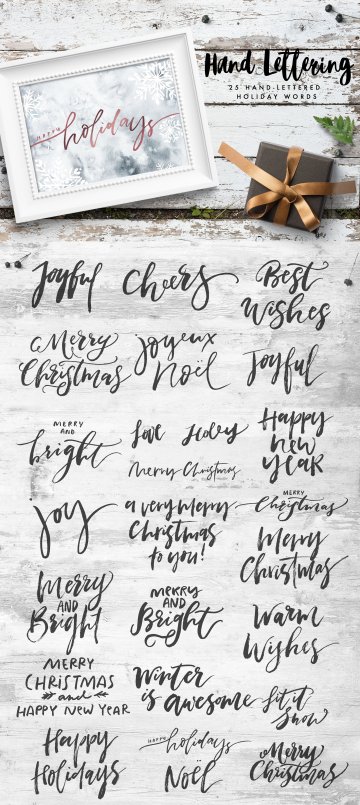 Hand Lettering
25 HAND-LETTERED
HOLIDAY WORDS
HAPPY
holidays
Joyful
Cheers
Best
Wishes
Merry
Christmas
joyeux
Noël
Joyful
MERRY
AND
bright
love
Holly
Merry Christmas
Happy
new
year
joy
a very Merry
Christmas
to you!
MERRY
Christmas
Merry
Christmas
Merry
AND
Bright
MERRY
AND
Bright
Warm
Wishes
MERRY
CHRISTMAS
and
HAPPY NEW YEAR
Winter
is awesome
let it
Snow
Happy
Holidays
HAPPY
holidays
Noël
Merry
Christmas